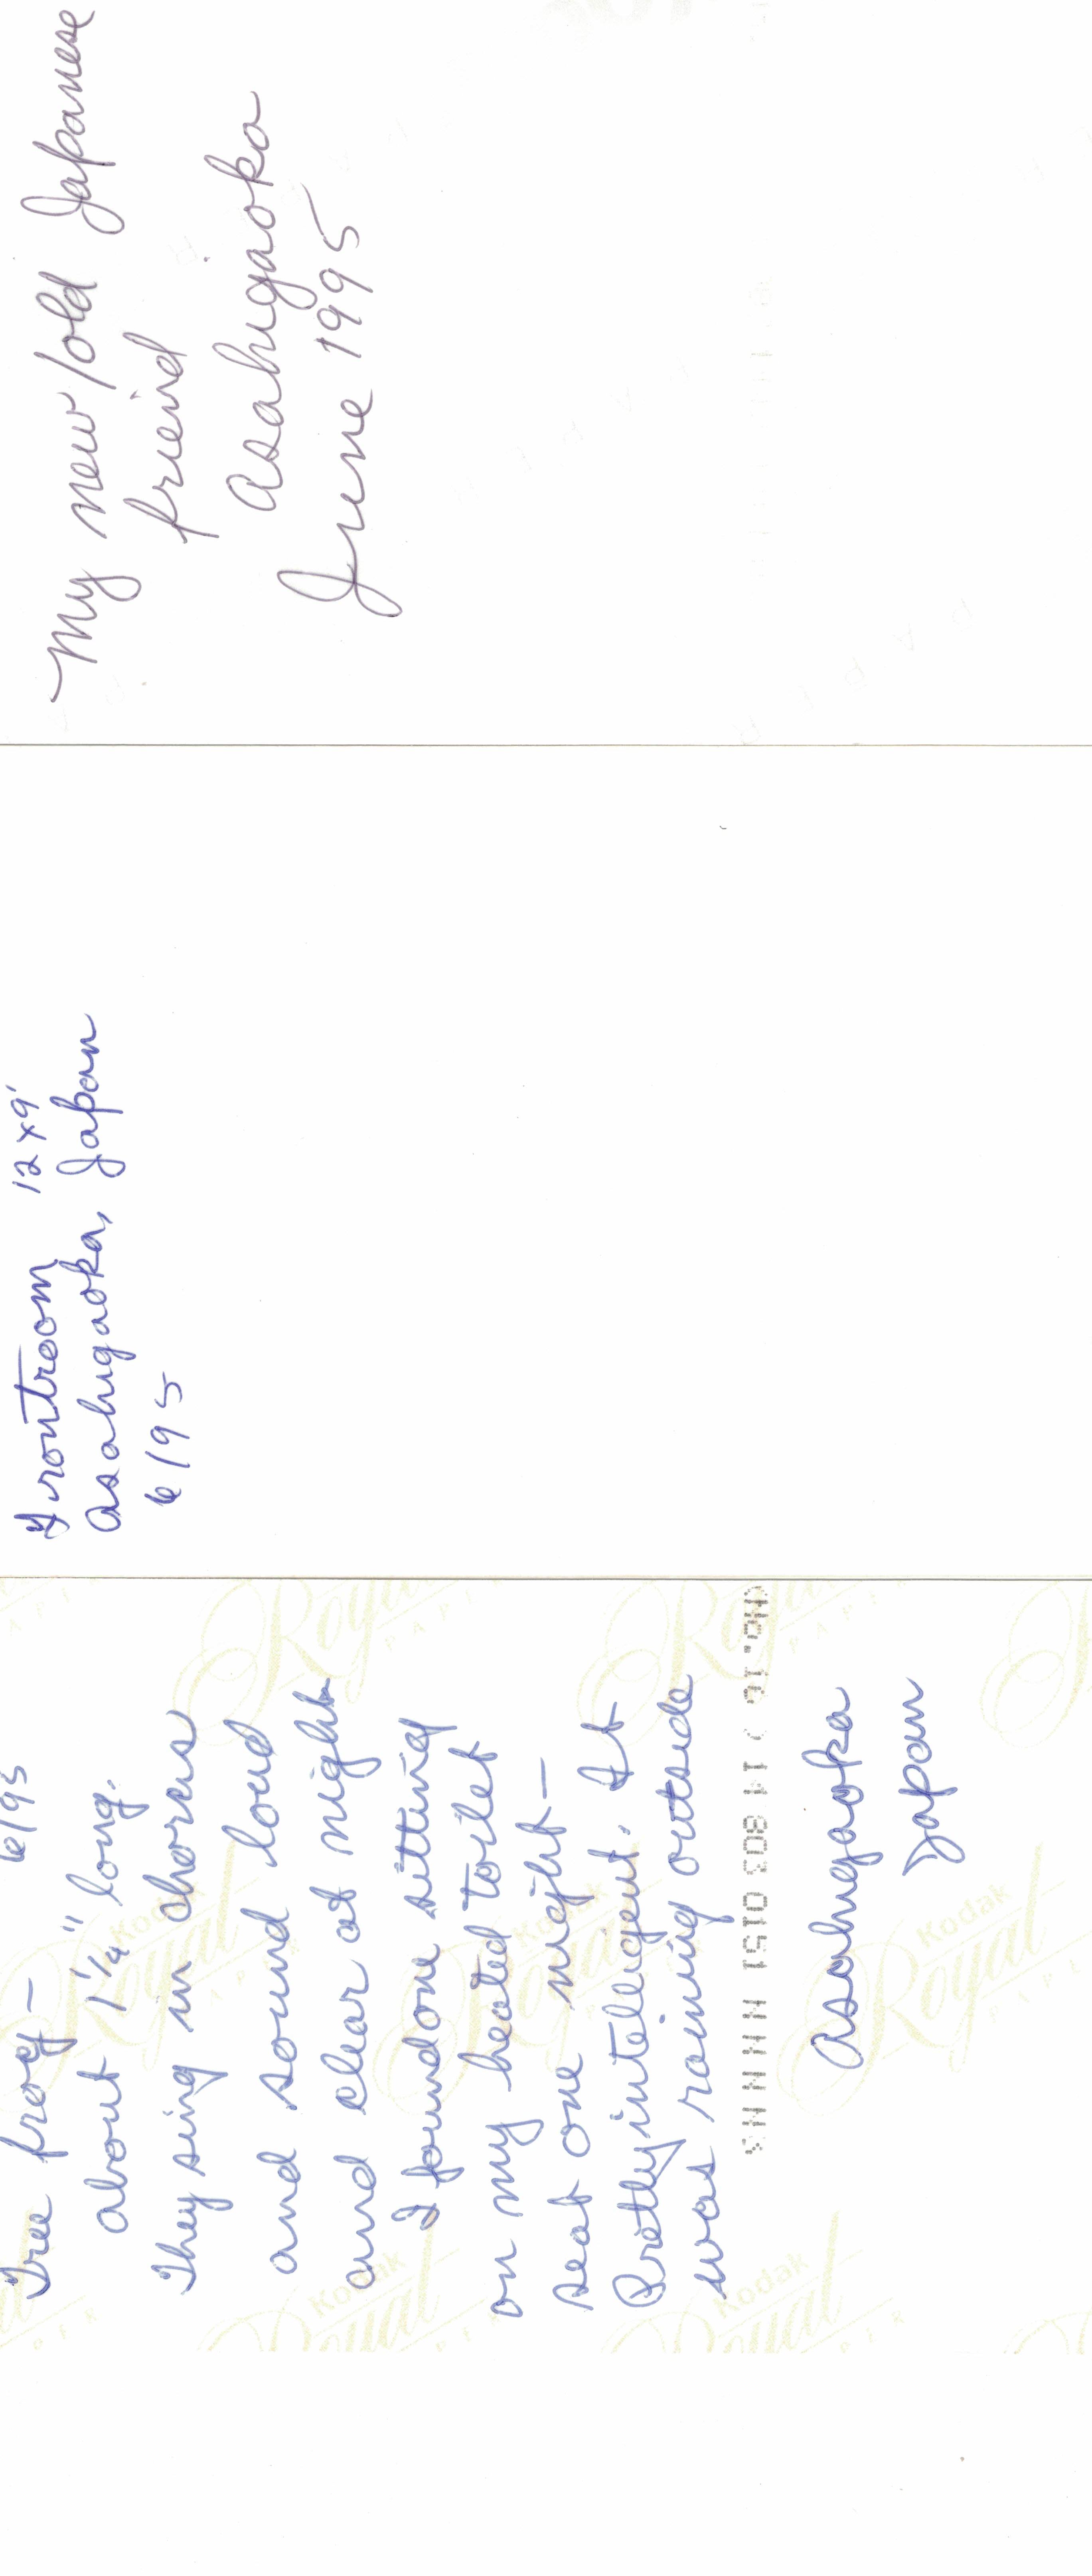 My new/old Japanese
freind
Asahigaoka
June 1995
Frontroom 12 x 9'
Asahigaoka, Japan
6/95
Tree frog – 6/95
about 1 1/4" long.
They sing in chorus
and sound loud
and clear at night
I found one sitting
on my heated toilet
seat one night –
Pretty intelligent. It
was raining outside
Asahigaoka
Japan
Kodak
Royal
PAPER